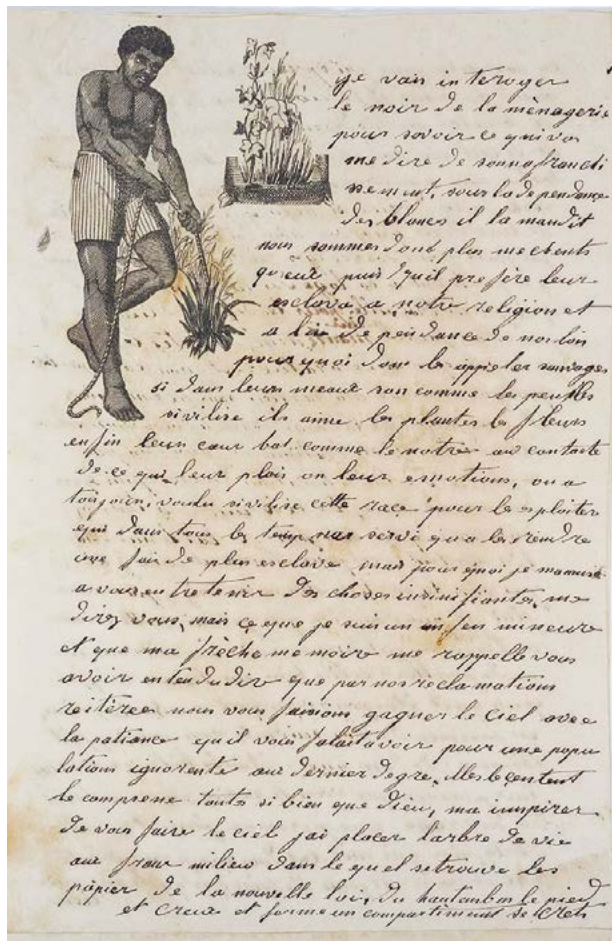 je vais interoger
le noir de la mènagerie
pour savoir ce qui va
me dire de son nafranchi
sement, sous la dependance
des blancs il la maudit
nous sommes dont plus mechents
qu'eux puis qu'il prefère leur
esclava a notre religion et
a la de pendance de nos lois
pourquoi donc les appeler sauvages
si dans leurs meaux son comme les peuples
sivilise ils aime les plantes les fleurs
enfin leurs cœur bat comme le notres au contacte
de ce qui leur plais on leurs emotions, on a
toujours, voulu sivilise cette race pour les esploiter
qui dans tous les temp na servi qu'a les rendre
une fois de plus esclave mais pour quoi je mamuse
a vous entretenir des choses insinifiantes, me
direz vous, mais ce que je suis un in sen mineure
et que ma frèche memoire me rappelle vous
avoir entendu dire que par nos reclamations
reitèrée nous vous faisions gagner le ciel avec
la patiance qu'il vous falait avoir pour une popu
lations ignorente au dernier degre,
le comprene toute si bien que dieu, ma inspirer
de vous faire le ciel jai placer larbre de vie
au franc milieu dans le quel se trouve les
pàpier de la nouvelle loi, du haut en bas le pied
et creux et forme un compartiment secrets